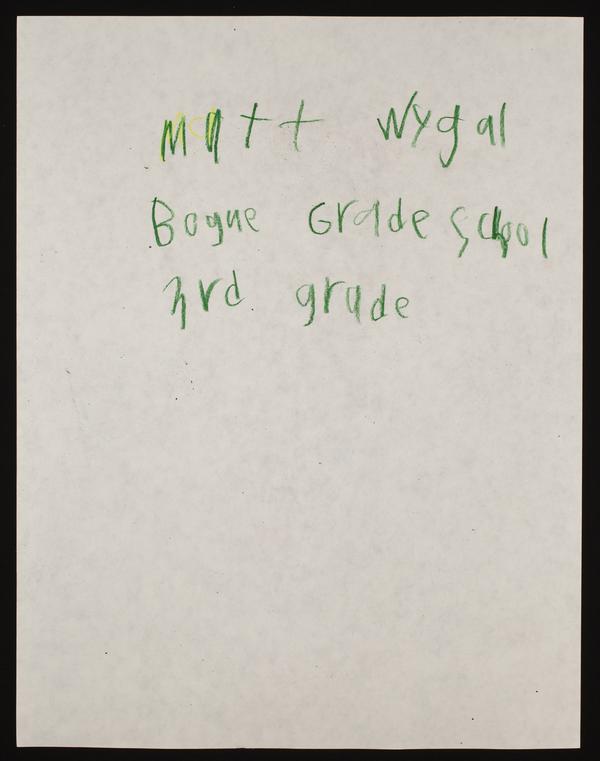 Matt Wygal
Bogue Grade School
3rd grade